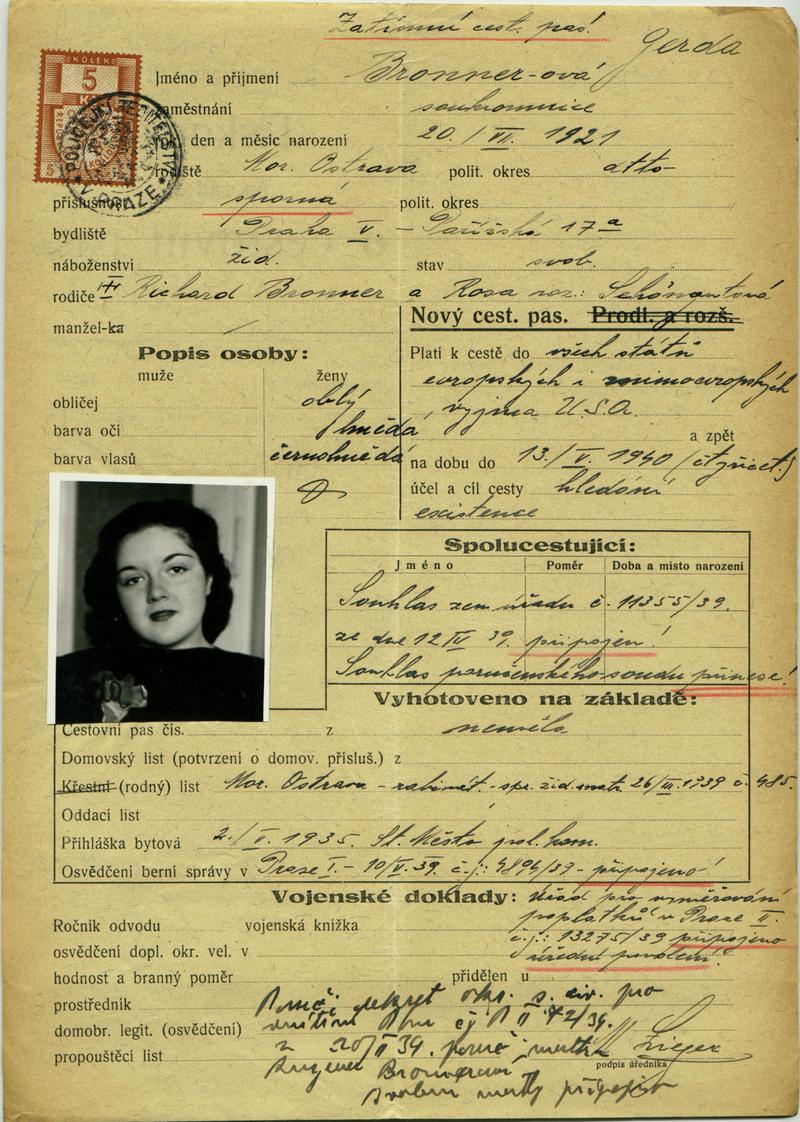 Zatímní cest. pas.
Gerda
KOLEK
5
Jméno a příjmení Bronner-ová
zaměstnání soukromnice
den a měsíc narození 20./VII. 1921
POLICEJNÍ ŘEDITELSTVÍ V PRAZE
rodiště Mor. Ostrava polit. okres dtto
příslušnost sporná polit. okres
bydliště Praha V. - Pařížská 17a
náboženství žid. stav svob.
rodiče Richard Bronner a Rosa roz.: Schöngutová
manžel-ka /
Nový cest. pas. Prodl. a rozš.
Popis osoby:
muže ženy
obličej oblý
barva očí hnědá
barva vlasů černohnědá
Platí k cestě do všech států
evropských i mimoevropských
vyjma U.S.A.
a zpět
na dobu do 13./V. 1940 (čtyřicet)
účel a cíl cesty hledání
existence
Spolucestující:
Jméno Poměr Doba a místo narození
Souhlas zem. úřadu č. 11355/39.
ze dne 12/IV 39. připojen!
Souhlas poručenského soudu přinese!
Vyhotoveno na základě:
Cestovní pas čís. z neměla
Domovský list (potvrzení o domov. přísluš.) z
Křestní (rodný) list Mor. Ostrava - rabinát. - spr. žid. matr. 26/III. 1939 č. 485.
Oddací list
Přihláška bytová 2./V. 1935. St. Město pol. kom.
Osvědčení berní správy v Praze I. - 10/V. 39. č.j.: 4896/39 - připojeno!
Vojenské doklady: Úřad pro vyměřování
poplatků v Praze II.
Ročník odvodu vojenská knížka
č.j.: 13275/39 připojeno
osvědčení dopl. okr. vel. v
úřední povolení!
hodnost a branný poměr přidělen u
prostředník
domobr. legit. (osvědčení)
propouštěcí list
podpis úředníka